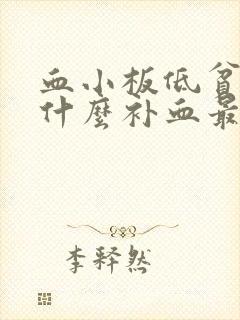 血小板低贫
什麼补血最
李释然